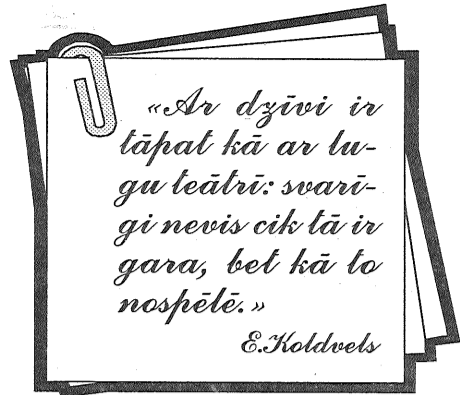 «Ar dzīvi ir
tāpat kā ar lu-
gu teātrī: svarī-
gi nevis cik tā ir
gara, bet kā to
nospēlē.»
E.Koldvels